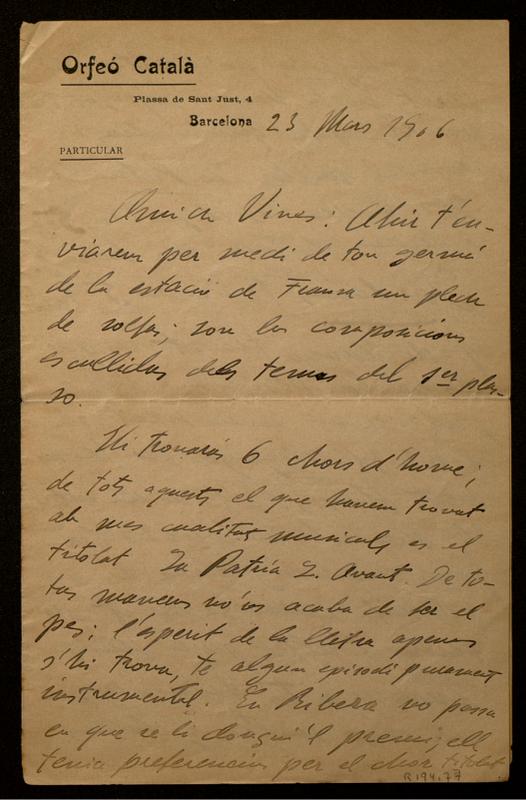 Orfeó Català
Plassa de Sant Just, 4
Barcelona 23 Mars 1906
PARTICULAR
Amich Vines: Ahir t'en-
viarem per medi de ton germá
de la estació de Fransa un plech
de solfas; son las composicions
escullidas dels temas del 1er plas-
so.
Hi trovarás 6 chors d'home;
de tots aquests el que havem trovat
ab mes cualitats musicals es el
titolat La Patria I. Avant. De to-
tas maneras no'ns acaba de ser el
pes; l'esperit de la lletra apenas
s'hi trova, te algun episodi purament
instrumental. En Ribera no passa
en que se li dongui'l premi; ell
tenia preferencias per el chor titolat
R 194.77